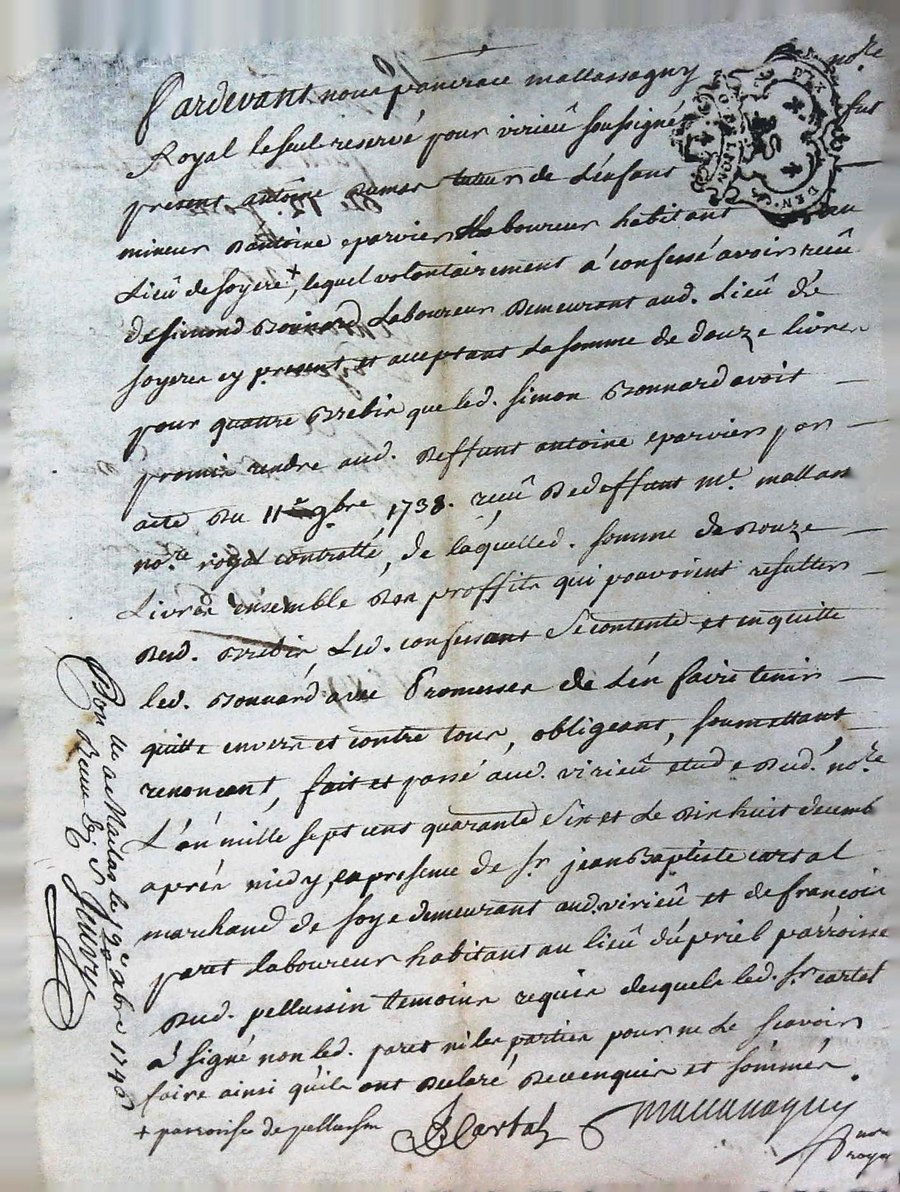 Pardevant nous pancrace mallassagny no.re
Royal le seul reservé pour virieû soussigné fut
present antoine Dumas tuteur de L'enfant
mineur D'antoine eparvier Laboureur habitant au
Lieû de soyere +, lequel volontairement à confessé avoir receû
de simond Bonnard Laboureur Demeurant aud. Lieû de
soyere cy present et acceptant La somme de douze livres
pour quattre Brebis que led. simon Bonnard avoit
promis rendre aud. Deffunt antoine eparvier par
acte Du 11e 9bre 1738. receû De deffunt me. mallas
no.re royal controllé, de laquelled. somme de Douze
Livres ensemble Des proffits qui pouvoient resulter
Desd. Brebis Led. confessant se contente et en quitte
led. Bonnard avec Promesses de L'en faire tenir
quitte envers et contre tous, obligeant, soumettant,
renonceant, fait et passé aud. virieû etude Dud. no.re
L'an mille sept cens quarante six et Le Dix huit decemb
après midy, en presence de sr. jean Baptiste cartal
marchand de soye demeurant aud. virieû et de françois
paret laboureur habitant au lieû du priel parroisse
Dud. pellussin temoins requis desquels led. sr. cartal
à signé non led. paret ni les parties pour ne Le scavoir
faire ainsi qu'ils ont Declaré De ce enquis et sommés.
+ parroisse de pellussin
JBCartal Mallassagny
no.re royal
DEN.
D. DE LION
a Mallas le 19e xbre 1746